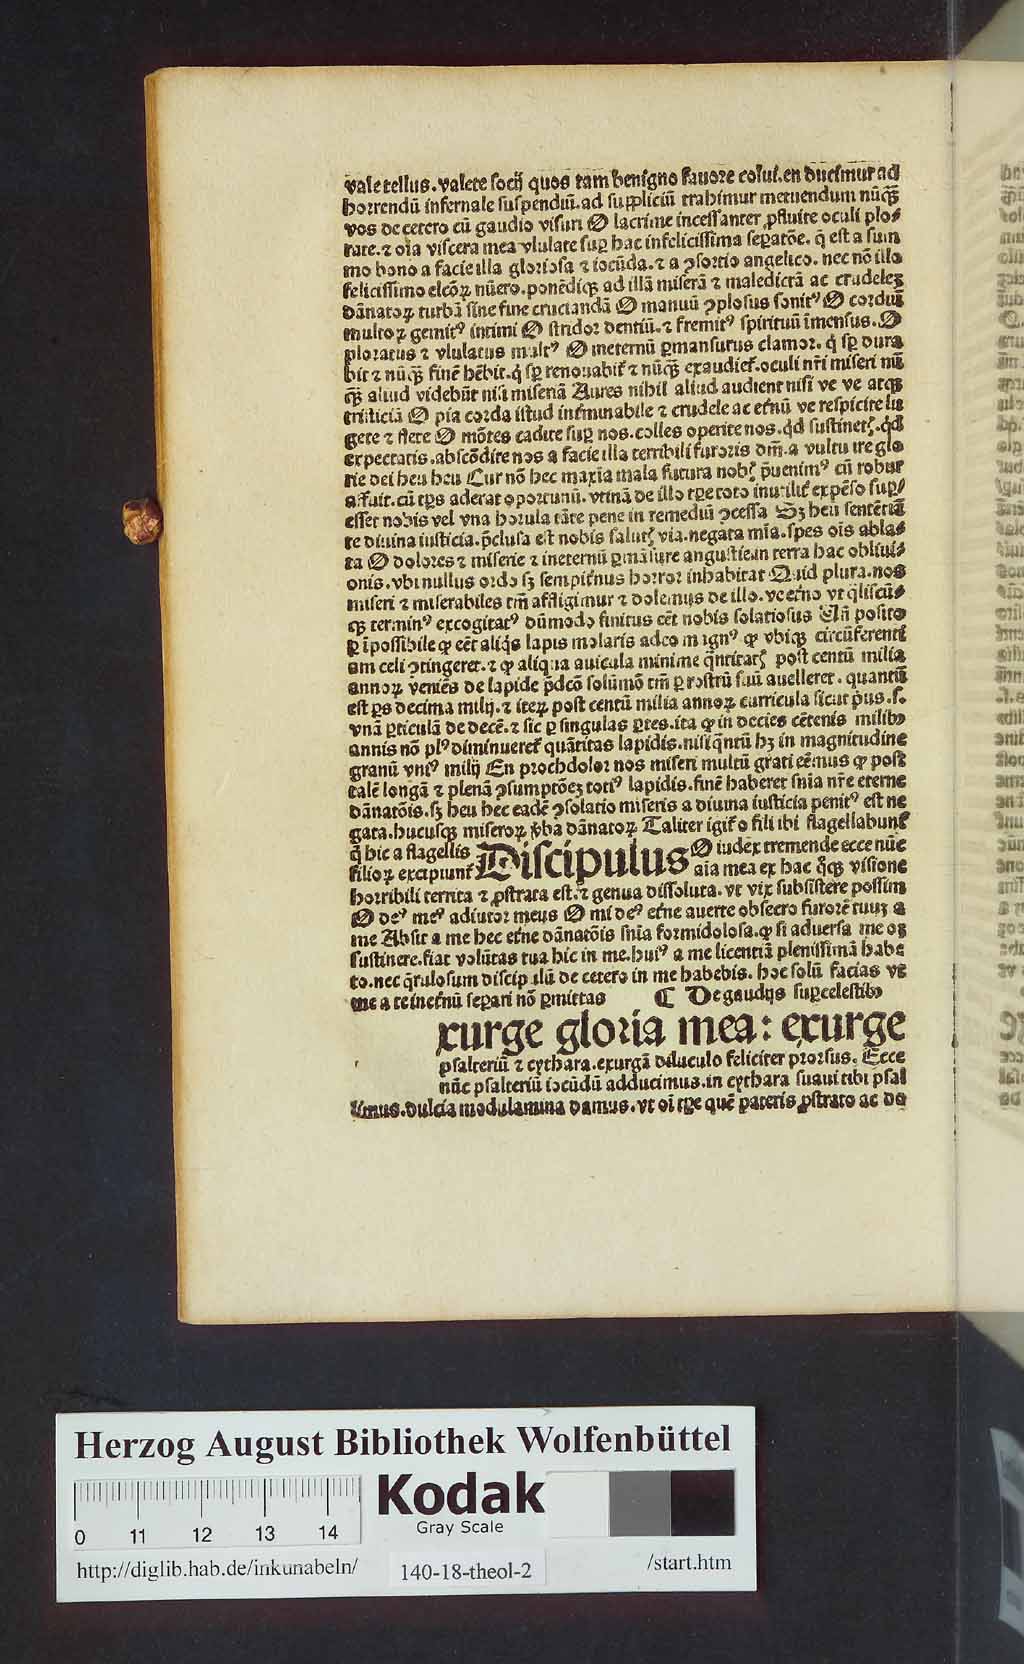 vale tellus. valete socij quos tam benigno fauore colui. en ducimur ad
horrendū infernale suspendiū. ad suppliciū trahimur metuendum nūqꝫ
vos de cetero cū gaudio visuri O lacrime incessanter ꝓfluite oculi plo-
rate. ⁊ oīa viscera mea vlulate suꝑ hac infelicissima seꝑatōe. q̄ est a sum
mo bono a facie illa gloriosa ⁊ iocūda. ⁊ a ꝯsortio angelico. nec nō illo
felicissimo elcōꝝ nūero. ponēdiqꝫ ad illā miserā ⁊ maledictā ac crudelez
dānatoꝝ turbā sine fine cruciandā O manuū ꝯplosus sonitꝰ O cordiū
multoꝝ gemitꝰ intimi O stridor dentiū. ⁊ fremitꝰ spirituū īmensus. O
ploratus ⁊ vlulatus multꝰ O ineternū ꝑmansurus clamor. q̇ sꝑ dura
bit ⁊ nūqꝫ finē hēbit. q̇ sꝑ renouabit̄ ⁊ nūqꝫ exaudiet̄. oculi nr̄i miseri nū
qꝫ aliud videbūt nisi miseriā Aures nihil aliud audient nisi ve ve atqꝫ
tristiciā O pia corda istud infminabile ⁊ crudele ac et̄nū ve respicite lu
gete ⁊ flete O mōtes cadite suꝑ nos. colles operite nos. qd̓ sustinetꝭ. qd̓
expectatis. abscōdite nos a facie illa terribili furoris dn̄i. a vultu ire glo
rie dei heu heu Cur nō hec maxīa mala futura nobꝭ p̄uenimꝰ cū robur
affuit. cū tꝑs aderat oportunū. vtinā de illo tꝑe toto inutilit̄ expēso suꝑ/
esset nobis vel vna horula tāte pene in remediū ꝯcessa Sꝫ heu sentētiā
te diuina iusticia. p̄clusa est nobis salutꝭ via. negata mīa. spes oīs abla-
ta O dolores ⁊ miserie ⁊ ineternū ꝑmāsure angustie in terra hac obliui-
onis. vbi nullus ordo sꝫ sempit̄nus horror inhabitat Quid plura. nos
miseri ⁊ miserabiles tm̄ affligimur ⁊ dolemus de illo. ve et̄no vt q̇liscū-
qꝫ terminꝰ excogitatꝰ dūmodo finitus eēt nobis solatiosus Nā posito
ꝑ īpossibile ꝙ eēt aliq̇s lapis molaris adeo magnꝰ ꝙ vbiqꝫ circūferenti
am celi ꝯtingeret. ⁊ ꝙ aliqua auicula minime q̄ntitatꝭ post centū milia
annoꝝ veniēs de lapide p̄dcō solūmō tm̄ ꝑ rostrū suū auelleret. quantū
est ꝑs decima milij. ⁊ iteꝝ post centū milia annoꝝ curricula sicut pͥus. s.
vnā ꝑticulā de decē. ⁊ sic ꝑ singulas ꝑtes. ita ꝙ in decies cētenis milibꝫ
annis nō plꝰ diminueret̄ quātitas lapidis. nisi q̄ntū hꝫ in magnitudine
granū vniꝰ milij En prochdolor nos miseri multū grati eēmus ꝙ post
talē longā ⁊ plenā ꝯsumptōeꝫ totiꝰ lapidis. finē haberet snīa nr̄e eterne
dānatōis. sꝫ heu hec eadē ꝯsolatio miseris a diuina iusticia penitꝰ est ne
gata. hucusqꝫ miseroꝝ v̄ba dānatoꝝ Taliter igit̄ o fili ibi flagellabunt̄
q̇ hic a flagellis Discipulus O iudex tremende ecce nūc
filioꝝ excipiunt̄ aīa mea ex hac q̊qꝫ visione
horribili territa ⁊ ꝓstrata est. ⁊ genua dissoluta. vt vix subsistere possim
O deꝰ meꝰ adiutor meus O mi deꝰ et̄ne auerte obsecro furorē tuuꝫ a
me Absit a me hec et̄ne dānatōis snīa formidolosa. ꝙ si aduersa me oꝫ
sustinere. fiat volūtas tua hic in me. huiꝰ a me licentiā plenissimā habe
to. nec q̄rulosum discipulū de cetero in me habebis. hoc solū facias vt
me a te ineternū seꝑari nō ꝑmittas ¶ De gaudijs suꝑcelestibꝫ
xurge gloria mea: exurge
psalteriū ⁊ cythara. exurgā diluculo feliciter prorsus. Ecce
nūc psalteriū iocūdū adducimus. in cythara suaui tibi psal
limus. dulcia modulamina damus. vt oī tꝑe quē pateris ꝓstrato ac do
Herzog August Bibliothek Wolfenbüttel
Kodak
Gray Scale
0 11 12 13 14
http://diglib.hab.de/inkunabeln/ 140-18-theol-2 /start.htm